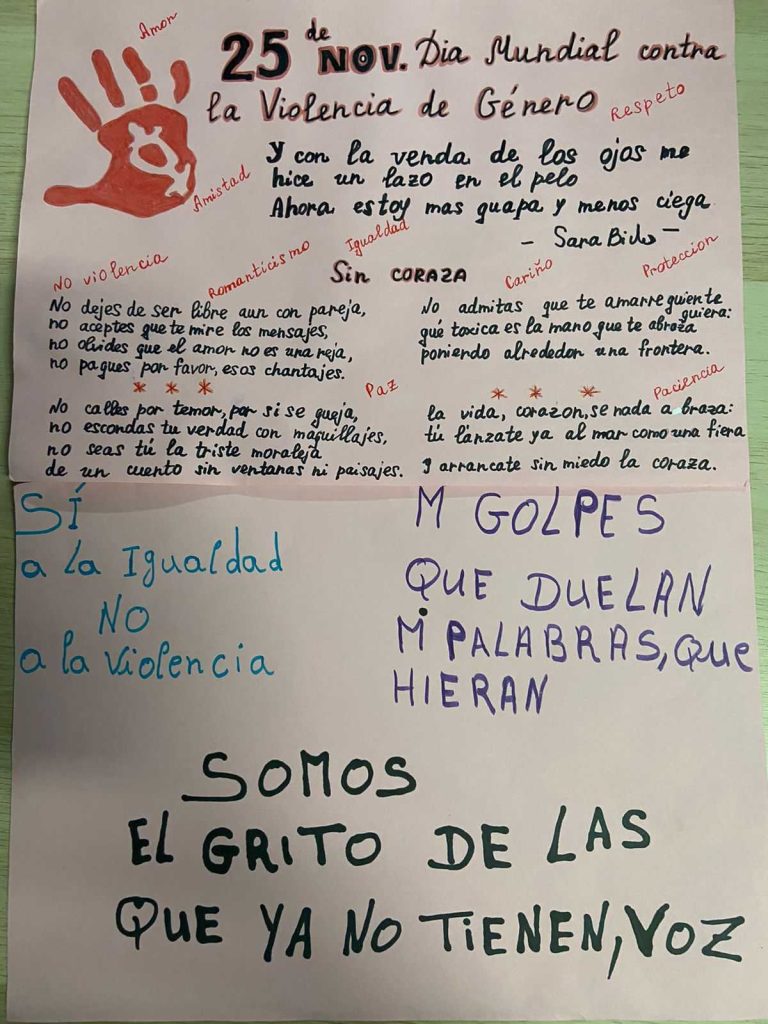 Amor
25 de NOV. Dia Mundial contra
la Violencia de Género
Respeto
y con la venda de los ojos me
hice un lazo en el pelo
Ahora estoy mas guapa y menos ciega
Amistad
Igualdad
- Sara Búho -
No violencia
Romanticismo
Sin CORAZA
Cariño
Proteccion
No dejes de ser libre aun con pareja,
no aceptes que te mire los mensajes,
no olvides que el amor no es una reja,
no pagues por favor, esos chantajes.
* * *
Paz
No calles por temor, por si se queja,
no escondas tu verdad con maquillajes,
no seas tú la triste moraleja
de un cuento sin ventanas ni paisajes.
No admitas que te amarre quiente
quiera:
qué toxica es la mano que te abraza
poniendo alrededor una frontera.
* * *
Paciencia
la vida, corazon, se nada a braza:
tú lánzate ya al mar como una fiera
y arrancate sin miedo la coraza.
SÍ
a la Igualdad
NO
a la violencia
Ni GOLPES
QUE DUELAN
Ni PALABRAS, QUE
HIERAN
SOMOS
EL GRITO DE LAS
QUE YA NO TIENEN, VOZ